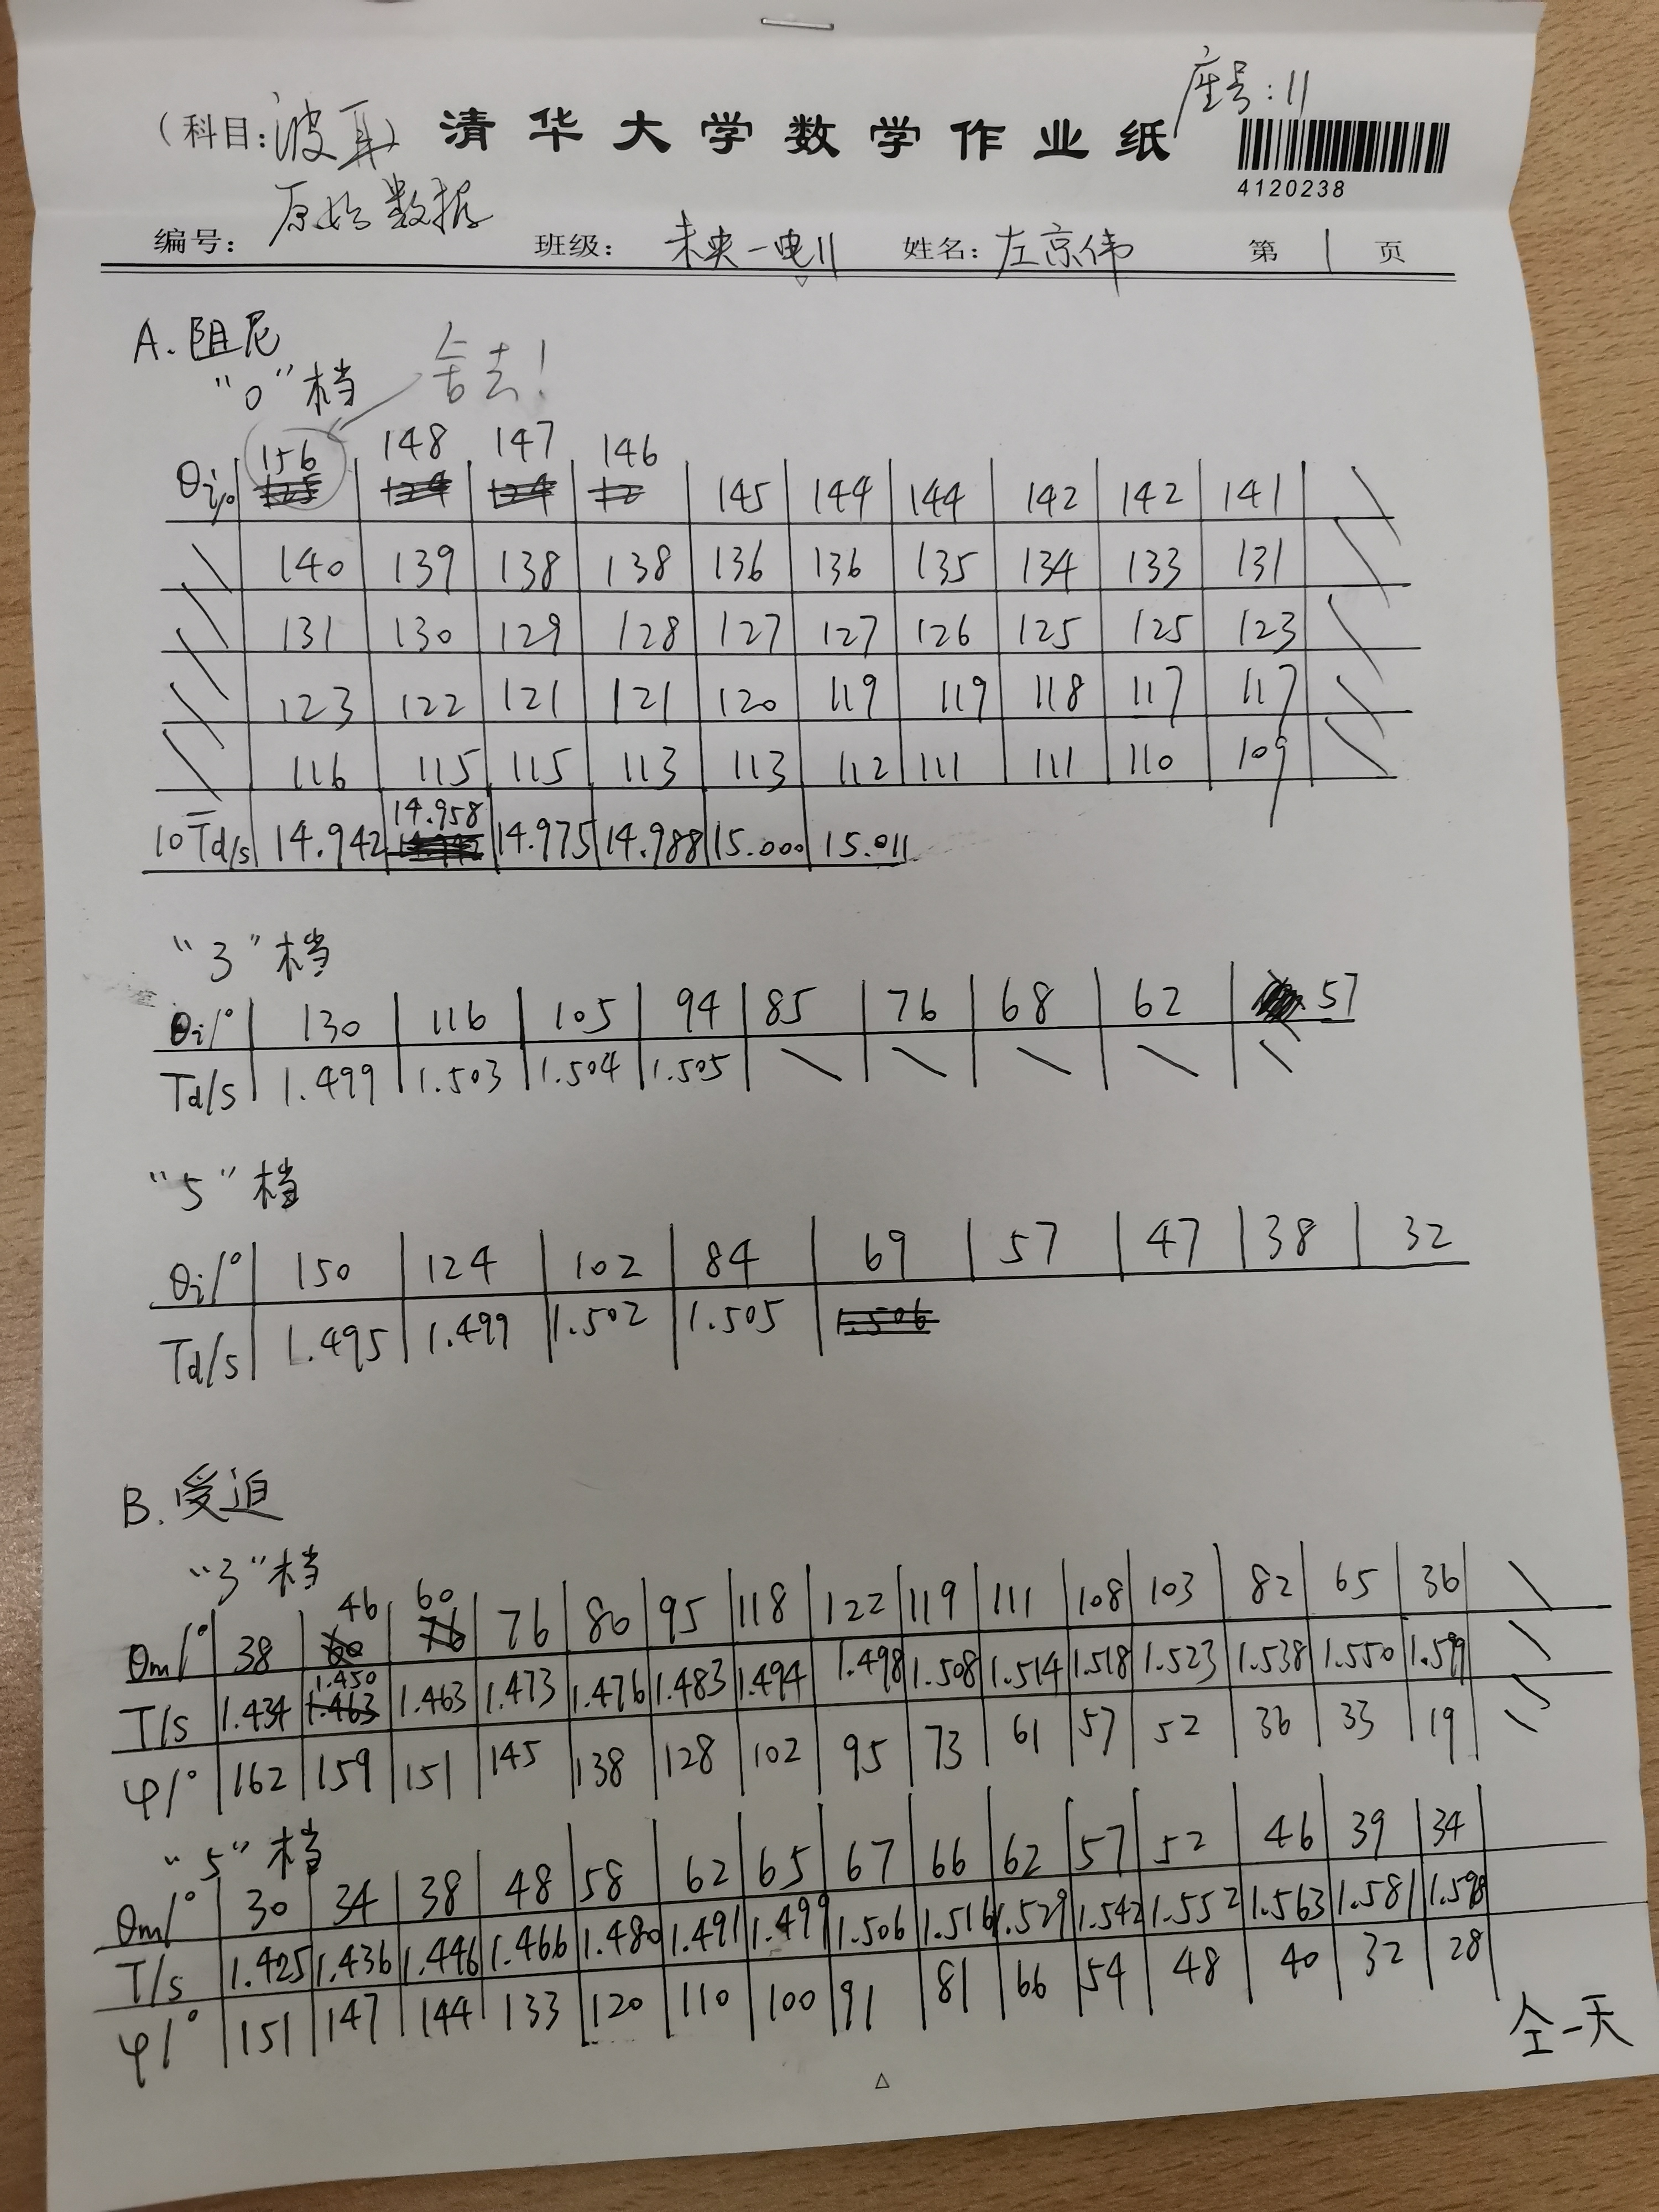 座号:11
(科目:波耳) 清华大学数学作业纸
4120238
原始数据
编号: 班级: 未央-电11 姓名:左京伟 第 1 页
A.阻尼
"0"档 舍去!
θi/° 156 148 147 146 145 144 144 142 142 141
140 139 138 138 136 136 135 134 133 131
131 130 129 128 127 127 126 125 125 123
123 122 121 121 120 119 119 118 117 117
116 115 115 113 113 112 111 111 110 109
10T̄d/s 14.942 14.958 14.975 14.988 15.000 15.011
"3"档
θi/° 130 116 105 94 85 76 68 62 57
Td/s 1.499 1.503 1.504 1.505
"5"档
θi/° 150 124 102 84 69 57 47 38 32
Td/s 1.495 1.499 1.502 1.505 1.506
B.受迫
"3"档
θm/° 38 46 60 76 86 95 118 122 119 111 108 103 82 65 36
T/s 1.434 1.450 1.463 1.473 1.476 1.483 1.494 1.498 1.508 1.514 1.518 1.523 1.538 1.550 1.599
φ/° 162 159 151 145 138 128 102 95 73 61 57 52 36 33 19
"5"档
θm/° 30 34 38 48 58 62 65 67 66 62 57 52 46 39 34
T/s 1.425 1.436 1.446 1.466 1.480 1.491 1.499 1.506 1.516 1.529 1.542 1.552 1.563 1.581 1.598
φ/° 151 147 144 133 120 110 100 91 81 66 54 48 40 32 28